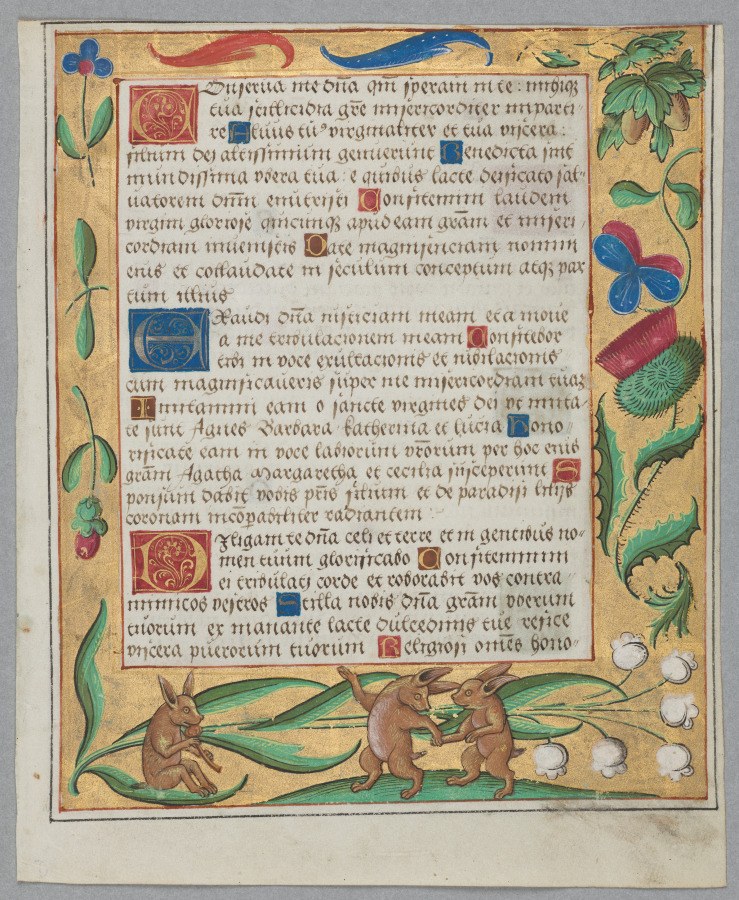 Conserva me dña qm̃ speravi in te : mihiqꝫ
tua stillicidia gr̃e misericorditer imparti-
re Alvus tuꝰ virginaliter et tua viscera :
filium dei altissimum genuerunt Benedicta sint
mundissima vbera tua : e quibus lacte deificato sal-
uatorem dñm enutristi Confitemini laudem
virgini gloriose quicunqꝫ apud eam grãm et miseri
cordiam inuenistis Date magnificenciam nomini
eius et collaudate in seculum conceptum atqꝫ par
tum illius
Exaudi dña iusticiam meam et a moue
a me tribulacionem meam Confitebor
tibi in voce exultacionis et iubilacionis
cum magnificaueris super me misericordiam tuaꝫ
Imitamini eam o sancte virgines dei vt imita-
te sunt Agnes Barbara katherina et lucia Hono
rificate eam in voce labiorum vr̃orum per hoc enis
grãm Agatha Margaretha et cecilia susceperunt S
ponsum dabit vobis pr̃is filium et de paradisi lilijs
coronam incõpabiliter radiantem
Diligam te dña celi et terre et in gentibus no-
men tuum glorificabo Confitemini
ei tribulati corde et roborabit vos contra
inimicos vestros Stilla nobis dña grãm vberum
tuorum ex manante lacte dulcedinis tue refice
viscera puerorum tuorum Religiosi omẽs hono-